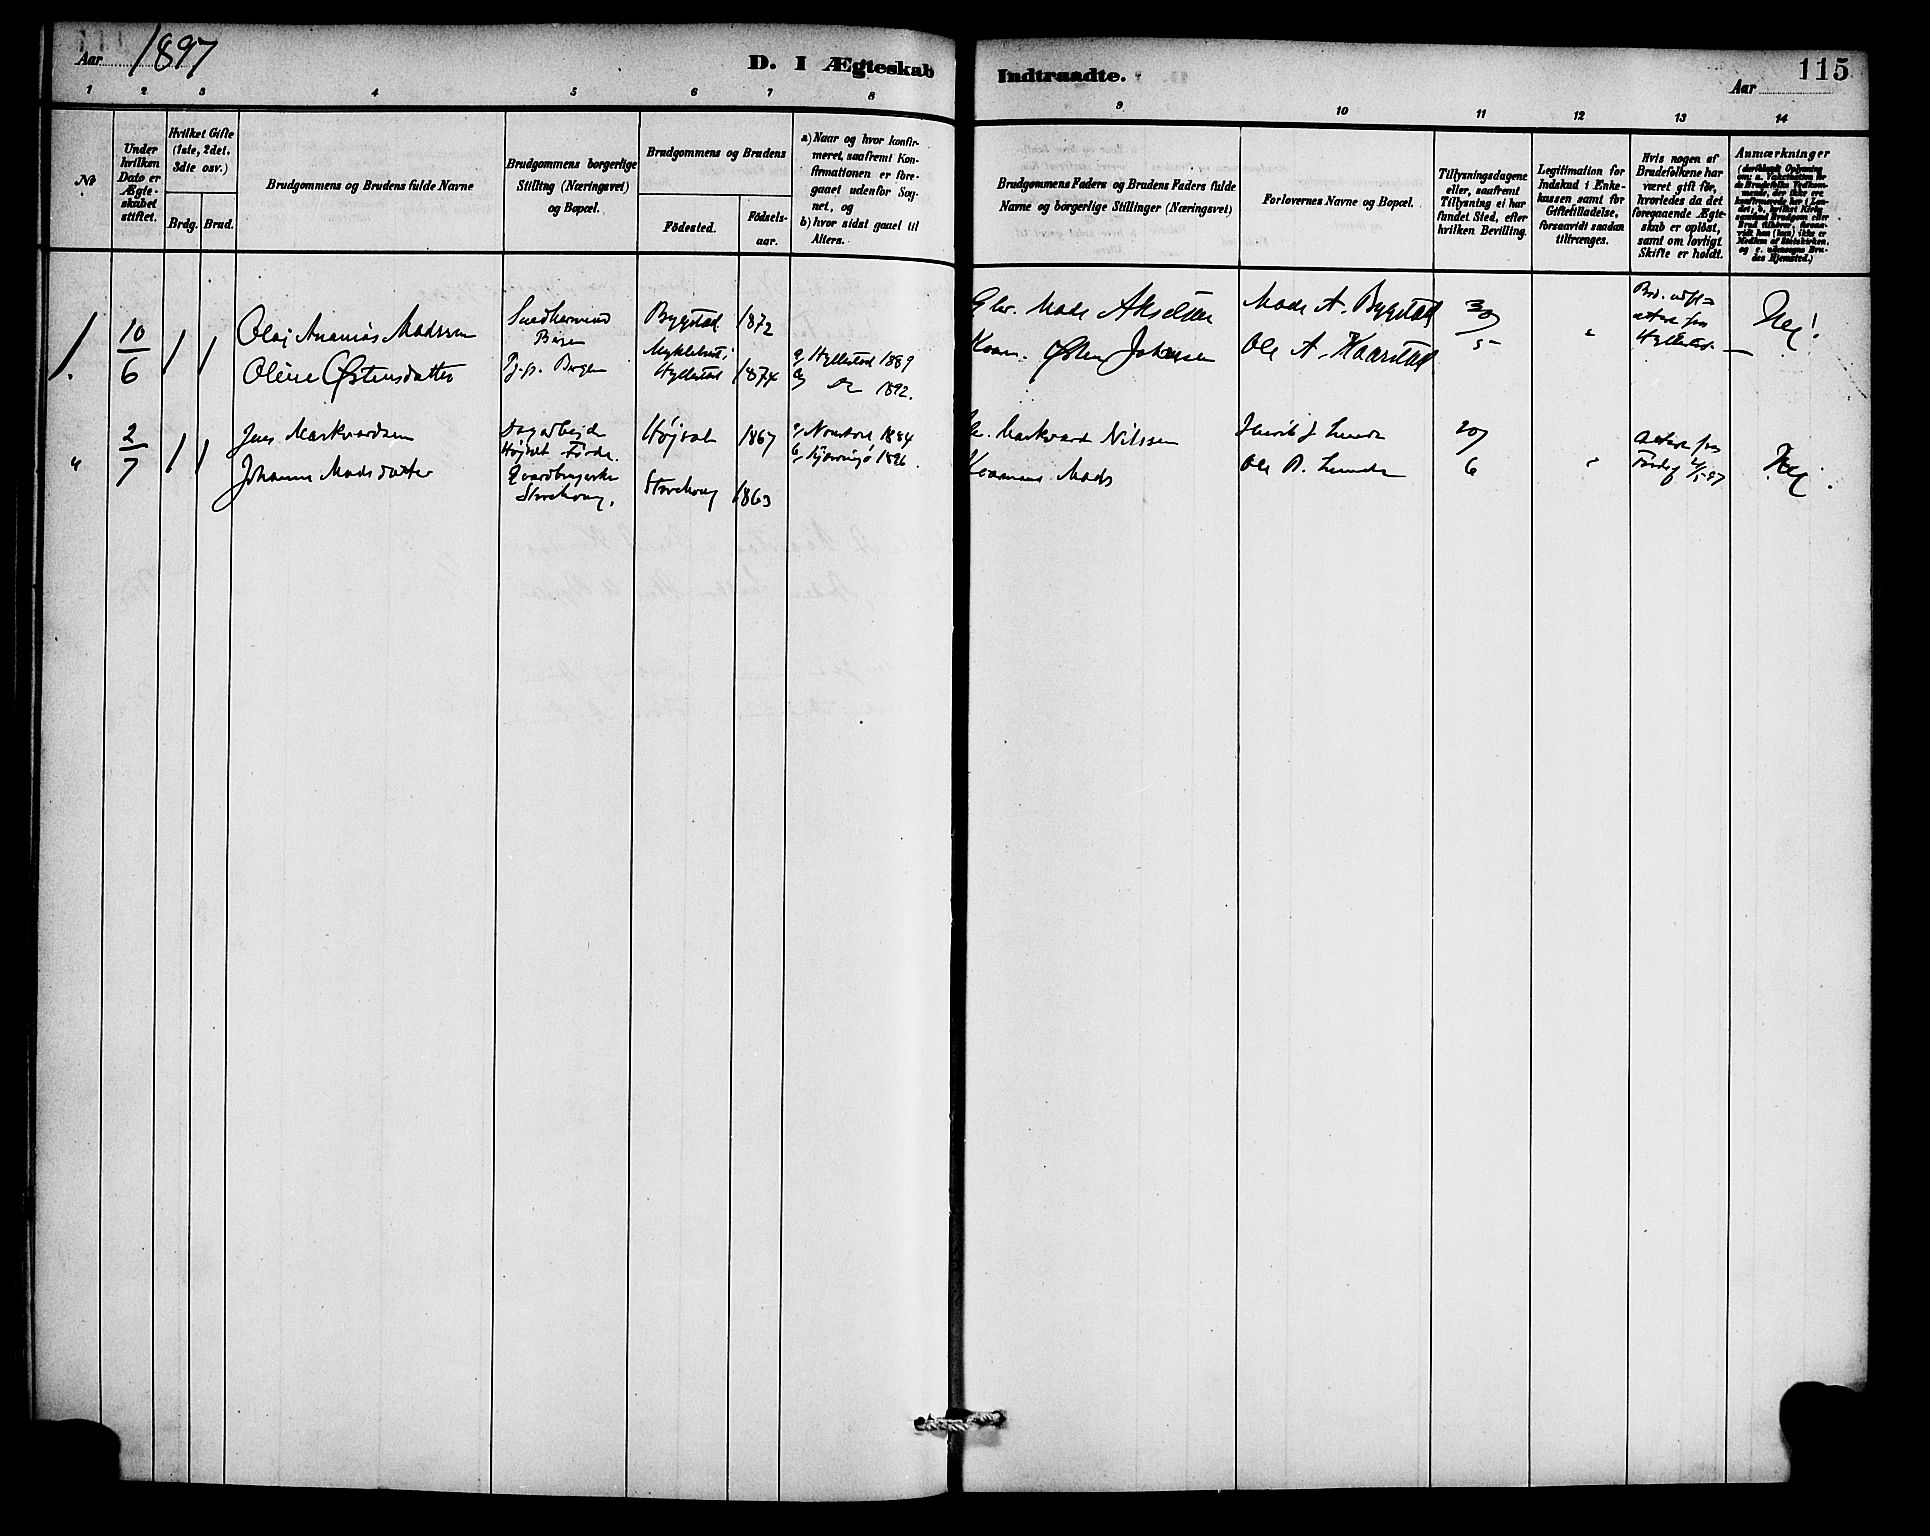 Aar 1897
D. I Ægteskab Indtraadte.
115
Aar
1 2 3 4 5 6 7 8 9 10 11 12 13 14
No
Under hvilken Dato er Ægteskabet stiftet.
Hvilket Gifte (1ste, 2det, 3die osv.)
Brdg. Brud.
Brudgommens og Brudens fulde Navne
Brudgommens borgerlige Stilling (Næringsvei) og Bopæl.
Brudgommens og Brudens
Födested.
Födselsaar.
a) Naar og hvor konfirmeret, saafremt Konfirmationen er foregaaet udenfor Sognet, og
b) hvor sidst gaaet til Alters.
Brudgommens Faders og Brudens Faders fulde Navne og borgerlige Stillinger (Næringsvei)
Forlovernes Navne og Bopæl.
Tillysningsdagene eller, saafremt Tillysning ei har fundet Sted, efter hvilken Bevilling.
Legitimation for Indskud i Enkekassen samt for Giftetilladelse, forsaavidt saadan tiltrænges.
Hvis nogen af Brudefolkene har været gift för, hvorledes da det foregaaende Ægteskab er oplöst, samt om lovligt Skifte er holdt.
Anmærkninger
1. 10/6 1 1
Olaj Ananias Madssen
Oline Østensdatter
Snedkersvend
Bergen
Bygstad 1872
Myklebust,
Hyllestad 1874
a, Hyllestad 1889
b, Do 1892.
Mads Akselsen
Østen Johansen
Mads A. Bygstad
Ole A. Kaarstad
30/5
"
attest fra
Hyllestad
Nei!
" 2/7 1 1
Jens Markvardsen
Johanne Madsdatter
Dagarbejder
Højset Förde.
Gaardbrugerske
Storehoug,
Højset 1867
Storehoug 1863
a, Naustdal 1884
b, 1896.
Markvard Nilssen
Kaarmand Mads
Henrik J Lunde
Ole B. Lunde
20/6
"
attest fra
Förde
Nei.